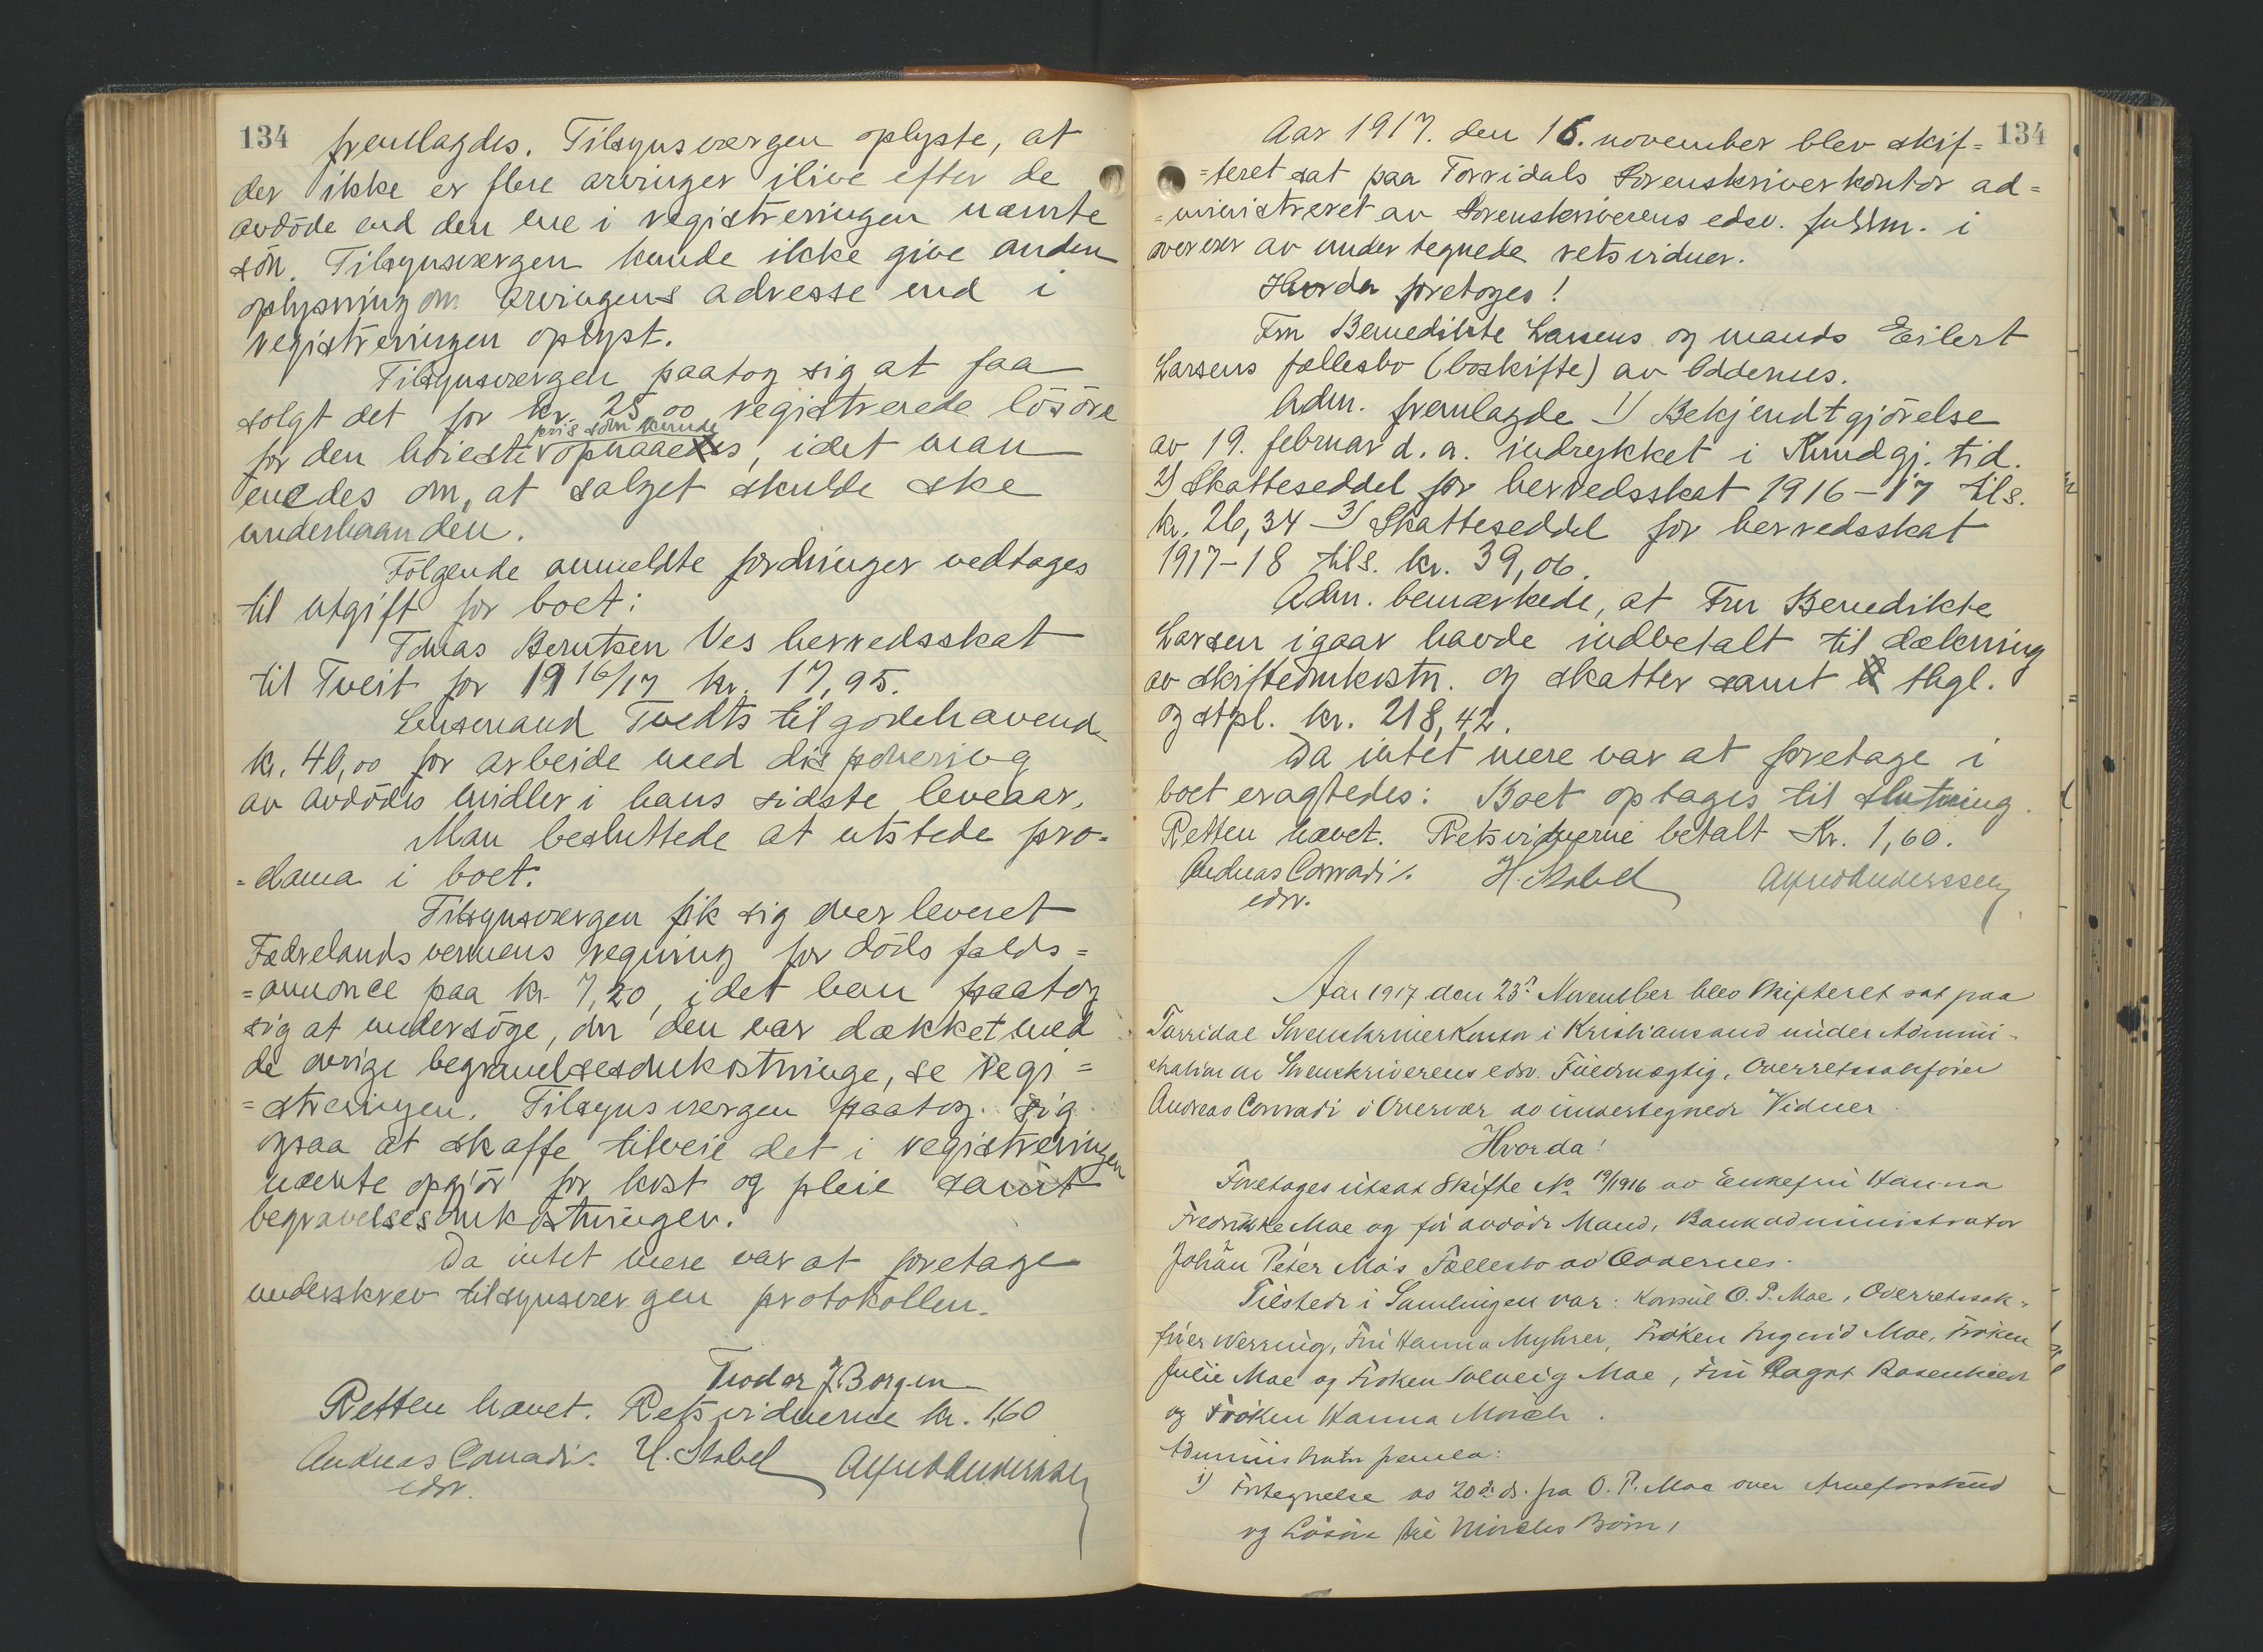 134
fremlagdes. Tilsynsværgen oplyste, at
der ikke er flere arvinger ilive efter de
avdöde end den ene i registreringen nævnte
sön. Tilsynsværgen kunde ikke give anden
oplysning om arvingens adresse end i
registreringen oplyst.
Tilsynsværgen paatog sig at faa
solgt det for kr. 25,00 registrerede lösöre
pris som kunde
for den höieste opnaaes, idet man
enedes om, at salget skulde ske
underhaanden.
Fölgende anmeldte fordringer vedtages
til utgift for boet:
Tomas Berntsen Ves herredsskat
til Tveit for 1916/17 kr. 17,95.
Lensmand Tvedts tilgodehavende
kr. 40,00 for arbeide med disponering
av avdödes midler i hans sidste leveaar.
Man besluttede at utstede pro=
=clama i boet.
Tilsynsværgen fik sig overleveret
Fædrelandsvennens regning for dödsfalds=
=annonce paa kr. 7,20, idet han paatog
sig at undersöge, om den var dækket med
de övrige begravelsesomkostninge, se regi=
=streringen. Tilsynsværgen paatog sig
ogsaa at skaffe tilveie det i registreringen
nævnte opgjör for kost og pleie samt
begravelsesomkostninger.
Da intet mere var at foretage
underskrev tilsynsværgen protokollen.
Teodor J. Borgen
Retten hævet. Retsvidnerne kr. 1,60
Andreas Conradi. H. Stabel Alfred Anderssen
edsv.
134
Aar 1917. den 16. november blev skif=
=teret sat paa Torridals Sorenskriverkontor ad=
=ministreret av Sorenskriverens edsv. fuldm. i
overvær av undertegnede retsvidner.
Hvorda foretoges!
Fru Benedikte Larsens og mands Eilert
Larsens fællesbo (boskifte) av Oddernes.
Adm. fremlagde 1) Bekjendtgjörelse
av 19. februar d. a. indrykket i Kundgj. tid.
2) Skatteseddel for herredsskat 1916-17 tils.
kr. 26,34 3) Skatteseddel for herredsskat
1917-18 tils. kr. 39,06.
Adm. bemærkede, at Fru Benedikte
Larsen igaar havde indbetalt til dækning
av skifteomkostn. og skatter samt thgl.
og stpl. kr. 218,42.
Da intet mere var at foretage i
boet eragtedes: Boet optages til slutning.
Retten hævet. Retsvidnerne betalt Kr. 1,60.
Andreas Conradi. H. Stabel Alfred Anderssen
edsv.
Aar 1917 den 23de November blev Skifteret sat paa
Torridal Sorenskriverkontor i Kristiansand under Admini-
stration av Sorenskriverens edsv. Fuldmægtig, Overretssakförer
Andreas Conradi i Overvær av undertegnede Vidner.
Hvorda!
Foretages utsat Skifte No 19/1916 av Enkefru Hanna
Fredrikke Moe og för avdöde Mand, Bankadministrator
Johan Peter Moe's Fællesbo av Oddernes.
Tilstede i Samlingen var: Konsul O. P. Moe, Overretssak-
förer Werring, Fru Hanna Myhrer, Fröken Ingerid Moe, Fröken
Julie Moe og Fröken Solveig Moe, Fru Dagny Rosenkilde
og Fröken Hanna Morch.
Administrator fremla:
1) Fortegnelse av 20de ds. fra O. P. Moe over Arveforskud
og Lösöre til Morchs Börn,